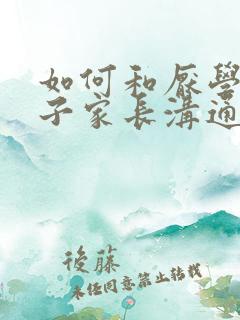 如何和厭學
子家長溝通
後藤
未經同意禁止轉載